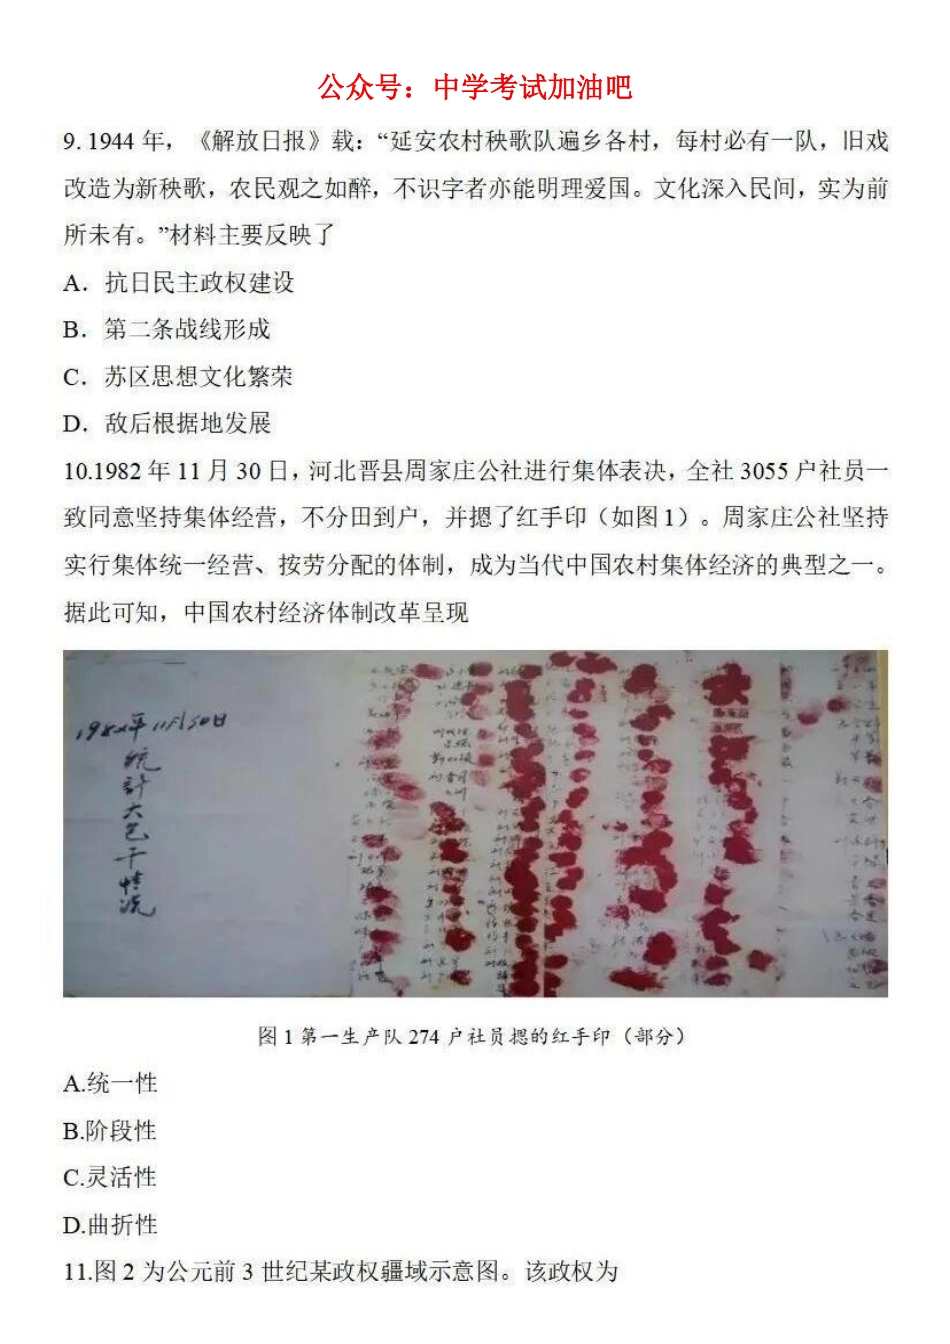 公众号：中学考试加油吧
9. 1944 年，《解放日报》载：“延安农村秧歌队遍乡各村，每村必有一队，旧戏
改造为新秧歌，农民观之如醉，不识字者亦能明理爱国。文化深入民间，实为前
所未有。”材料主要反映了
A．抗日民主政权建设
B．第二条战线形成
C．苏区思想文化繁荣
D．敌后根据地发展
10.1982 年 11 月 30 日，河北晋县周家庄公社进行集体表决，全社 3055 户社员一
致同意坚持集体经营，不分田到户，并摁了红手印（如图 1）。周家庄公社坚持
实行集体统一经营、按劳分配的体制，成为当代中国农村集体经济的典型之一。
据此可知，中国农村经济体制改革呈现
1982年11月30日
统计大包干情况
图 1 第一生产队 274 户社员摁的红手印（部分）
A.统一性
B.阶段性
C.灵活性
D.曲折性
11.图 2 为公元前 3 世纪某政权疆域示意图。该政权为